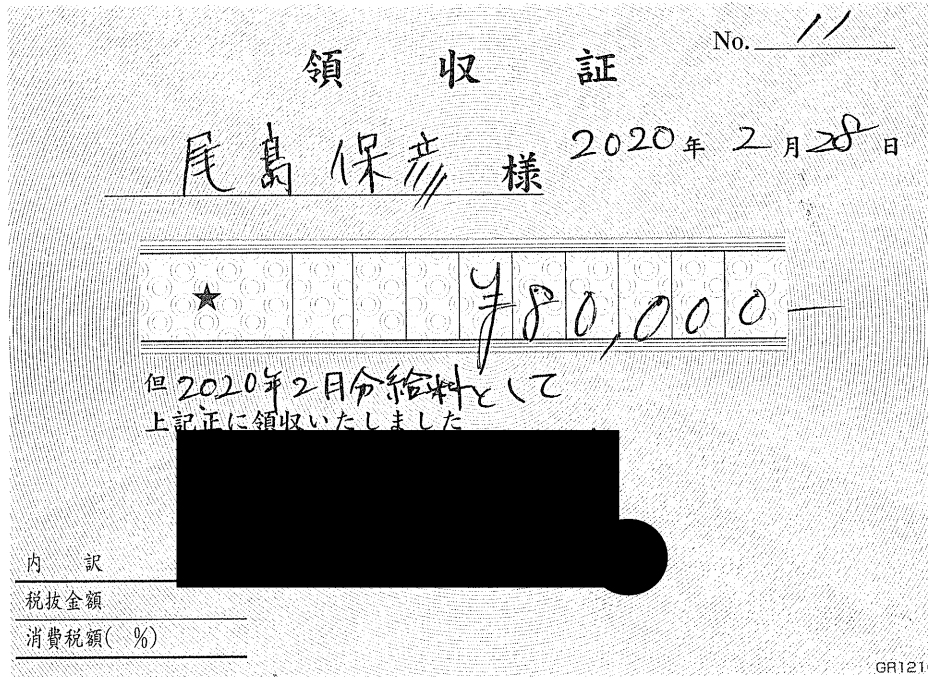 No. 11
領収証
尾島保彦 様
2020年2月28日
★ ¥80,000-
但 2020年2月分給料として
上記正に領収いたしました
内 訳
税抜金額
消費税額( %)
GR121